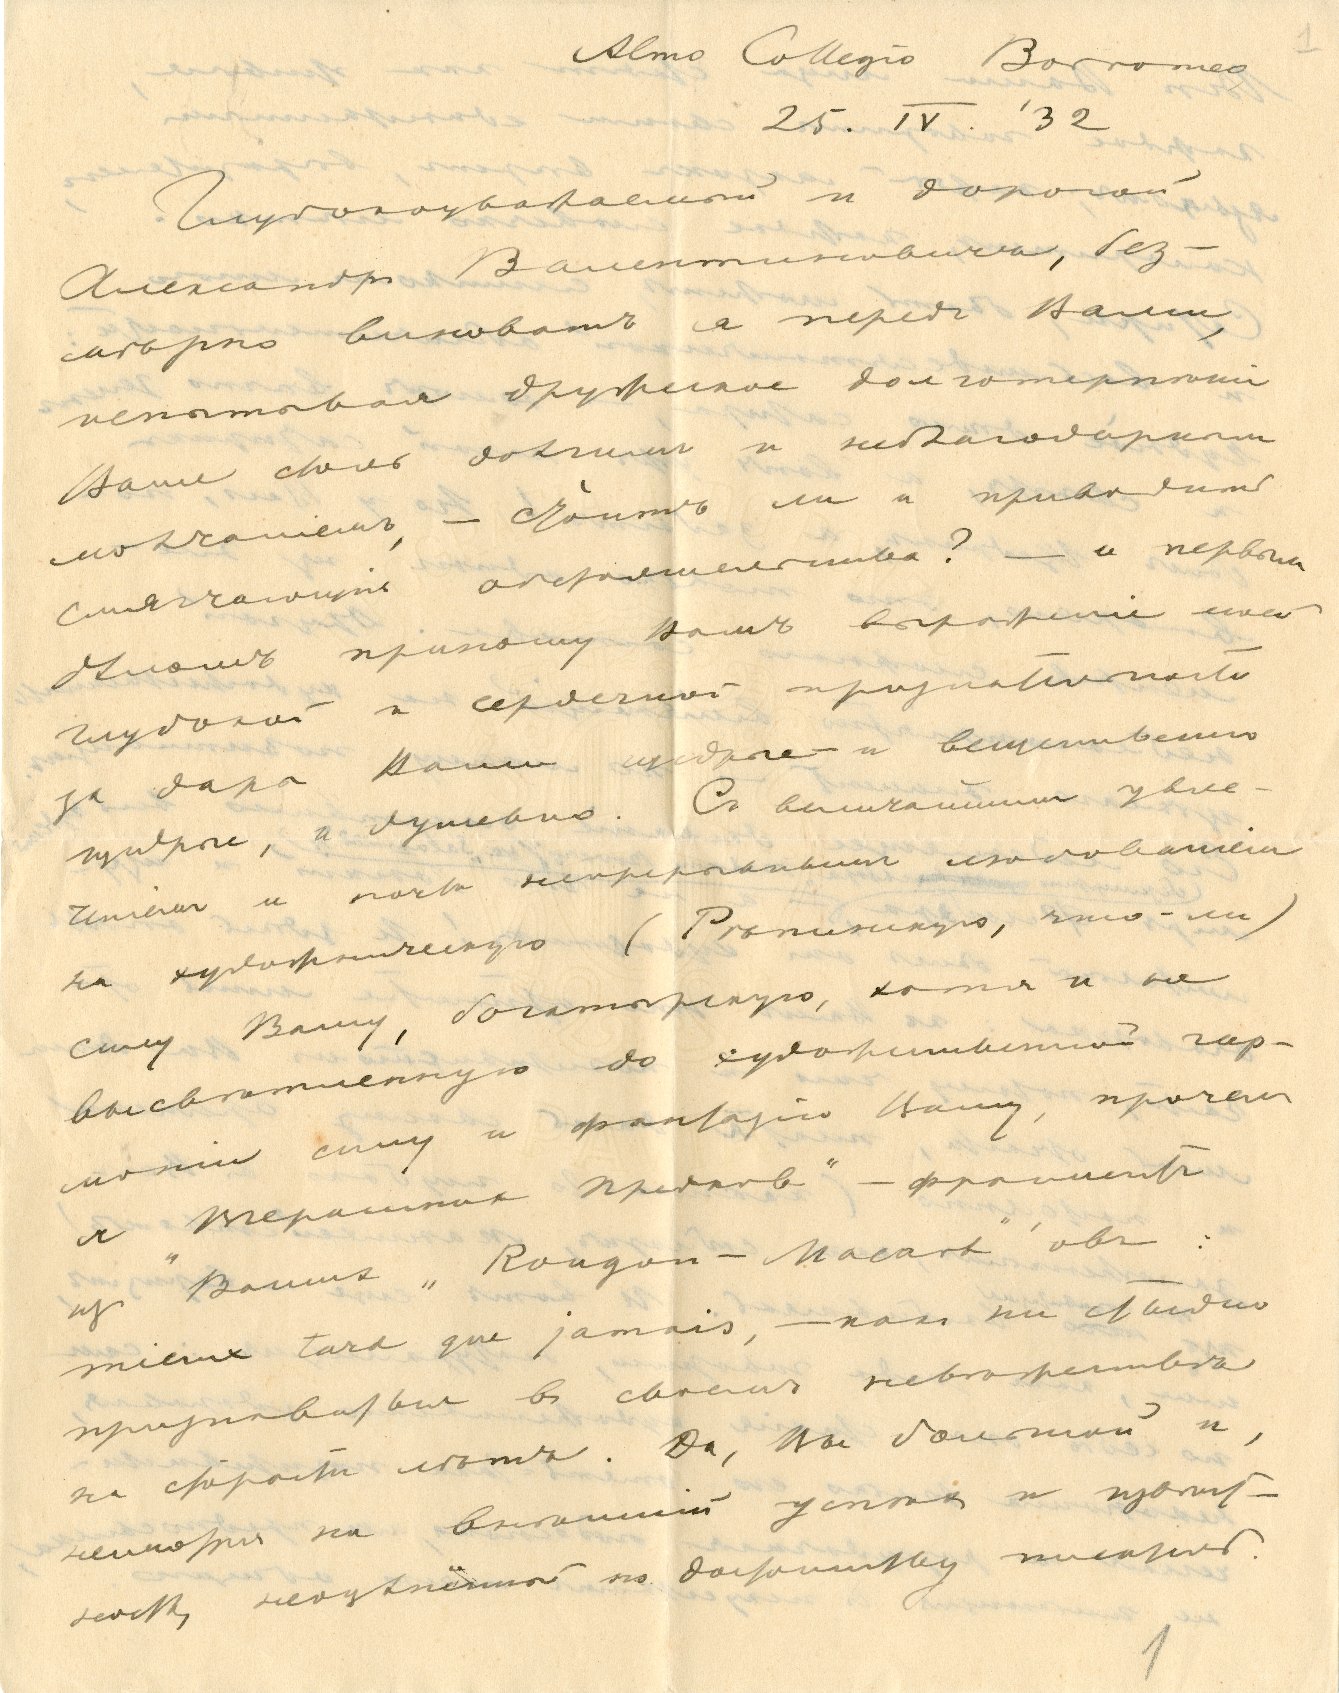 1
Almo Collegio Borromeo
25. IV. '32
Глубокоуважаемый и дорогой
Александръ Валентиновичъ, без-
мѣрно виноватъ я передъ Вами,
испытывая дружеское долготерпѣніе
Ваше столь долгимъ и неблагодарнымъ
молчаніемъ, — стоитъ ли и приводить
смягчающія обстоятельства? — и первымъ
дѣломъ приношу Вамъ выраженіе моей
глубокой и сердечной признательности
за дары Ваши щедрые — и вещественно
щедрые, и душевно. Съ величайшимъ увле-
ченіемъ и почти непрерывнымъ любованіемъ
на художническую (Рѣпинскую, что-ли)
силу Вашу, богатырскую, хотя и не
высвѣтленную до художественной гар-
моніи силу и фантазію Вашу, прочелъ
я "Вчерашнихъ Предковъ" — фрагментъ
изъ Вашихъ "Rougon-Macart"'овъ:
mieux tard que jamais, — какъ ни стыдно
признаваться въ своемъ невѣжествѣ
на старости лѣтъ. Да, Вы большой и,
несмотря на внѣшній успѣхъ и извѣст-
ность, неоцѣнённый по достоинству писатель.
1